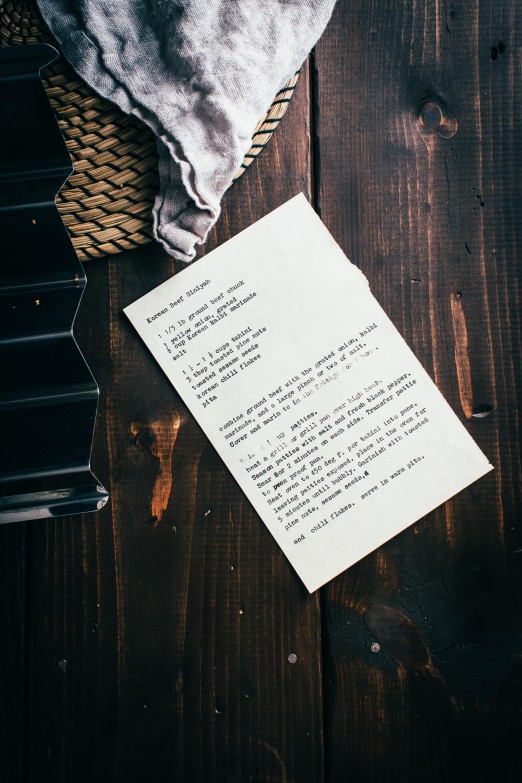 Korean Beef Siniyah
1 1/3 lb ground beef chuck
1 yellow onion, grated
½ cup Korean kalbi marinade
salt
1 ¼ - 1 ½ cups tahini
3 tbsp toasted pine nuts
toasted sesame seeds
Korean chili flakes
pita
combine ground beef with the grated onion, kalbi
marinade, and a large pinch or two of salt.
Cover and marin te in the fridge
up patties.
heat a grill or grill pan over high heat.
Season patties with salt and fresh black pepper.
Sear for 2 minutes on each side. Transfer pattie
to oven proof pan.
Heat oven to 450 deg f. por tahini into pane,
leaving patties exposed, place in the oven for
5 minutes until bubbly. Garinish with toasted
pine nuts, sesame seeds,
and chili flakes. serve in warm pita.